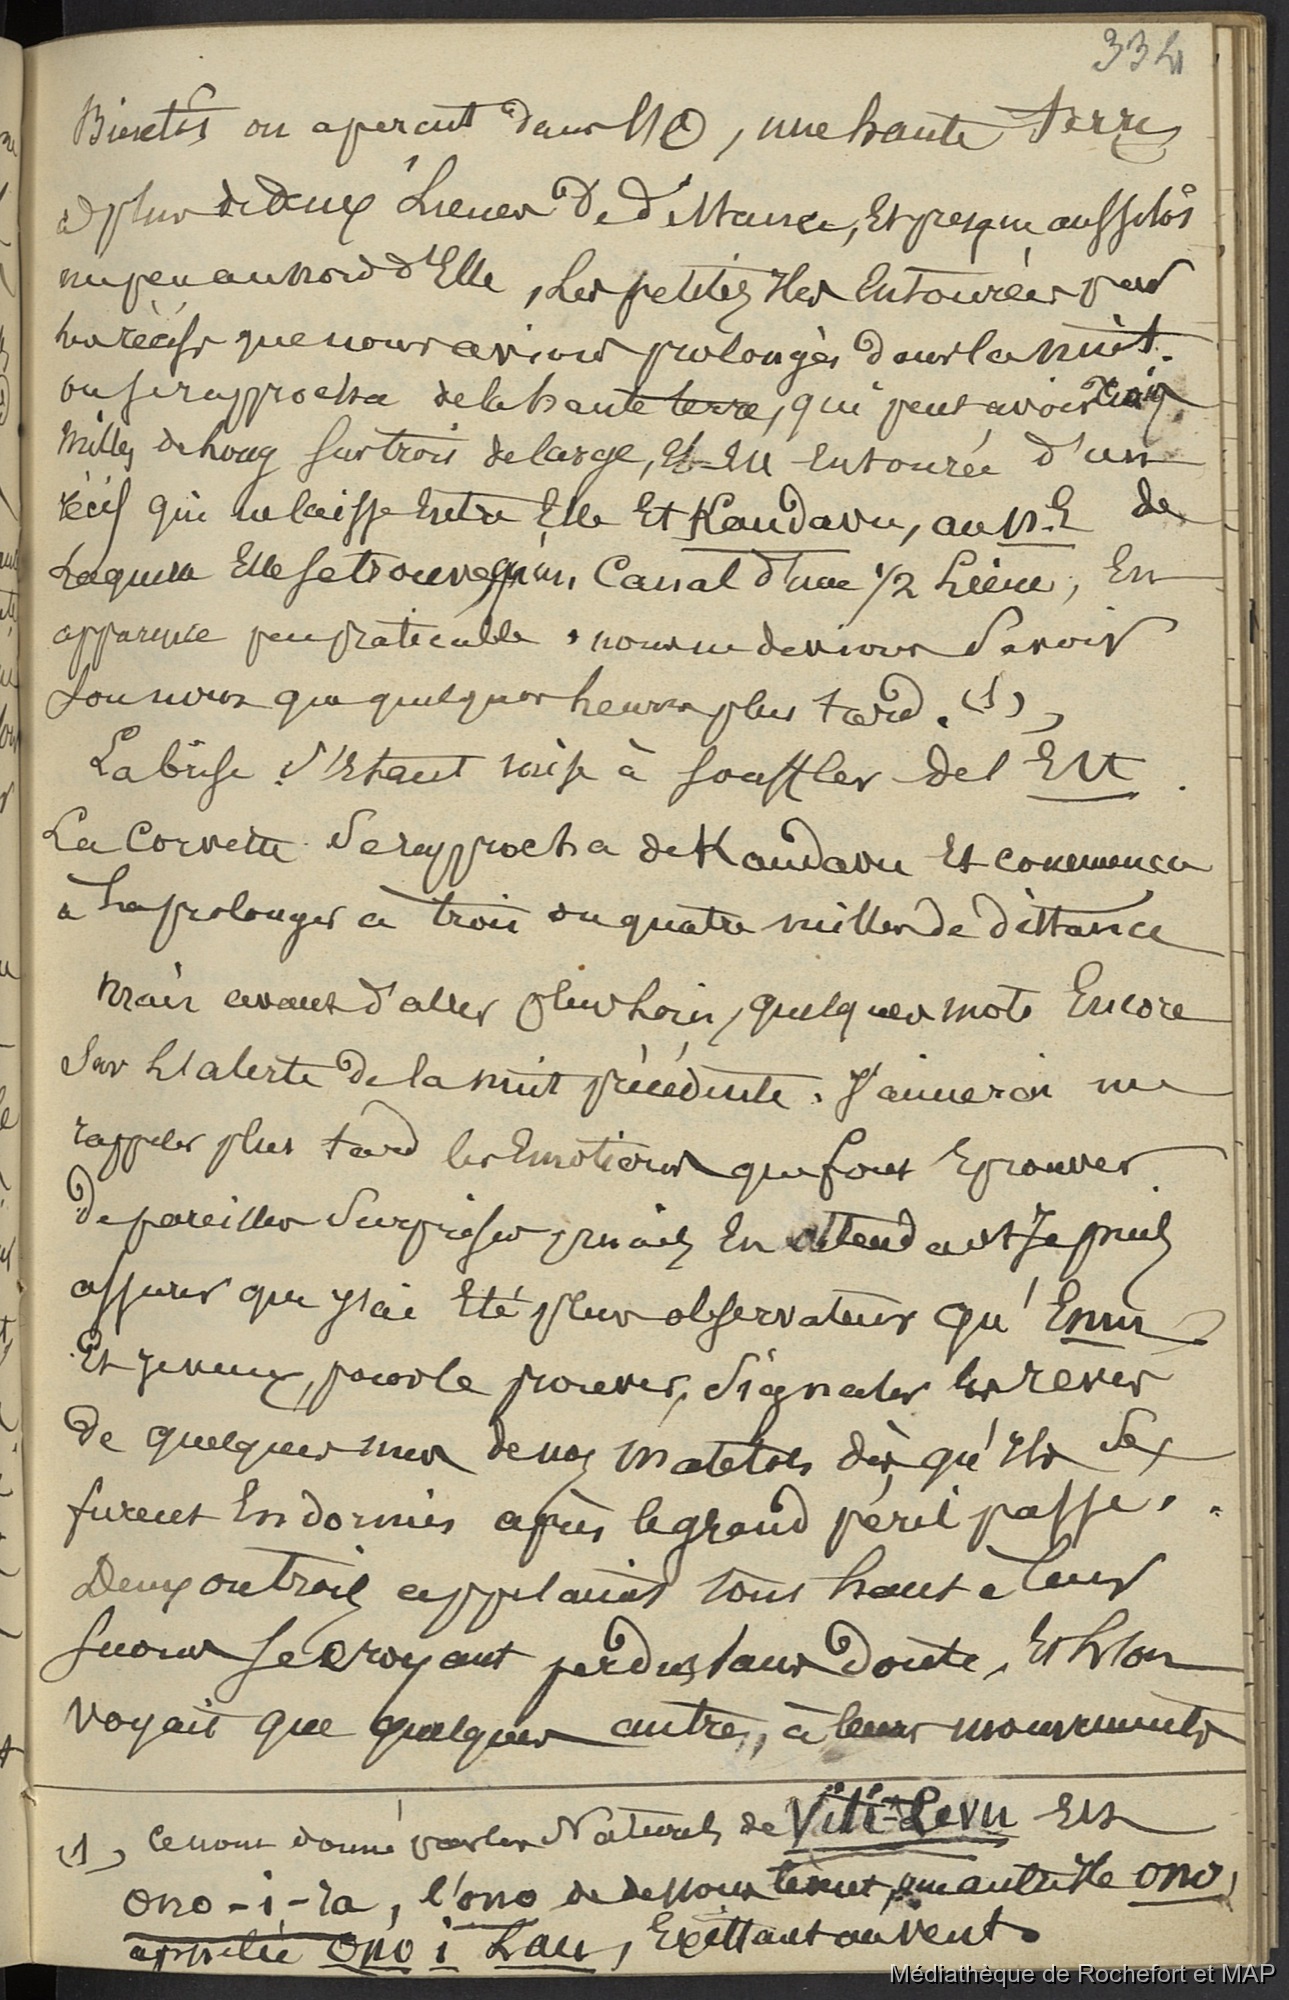 334
Bientôt on aperçut dans l'O, une haute terre
à plus de deux Lieues De distance, Et presque aussitôt
un peu au nord d'Elle, Les petites Iles Entourées par
les récifs que nous avions prolongés dans la nuit.
on se rapprocha de la haute terre, qui peut avoir
milles de Long sur trois de large, Et Est Entourée d'un
récif qui ne laisse Entre Elle Et Kandavu, au N.E de
Laquelle Elle se trouve, qu'un Canal d'une 1/2 Lieue, En
apparence peu praticable. nous ne devions Savoir
son nom que quelques heures plus tard. (1),
La brise s'étant mise à souffler de l'Est.
La Corvette Se rapprocha de Kandavu Et commença
à La prolonger à trois ou quatre milles de distance
Mais avant d'aller plus Loin, quelques mots Encore
Sur L'alerte De la nuit précédente. J'aimerai me
rappeler plus tard les Emotions que font Eprouver
De pareilles Surprises, mais En attendant Je puis
assurer que J'ai Eté plus observateur qu'Emu
Et je veux, pour le prouver, Signaler les reves
De quelques uns de nos matelots dès qu'Ils Se
furent Endormis après le grand péril passé.
Deux ou trois appelaient tout haut à leur
secours se croyant perdus sans Doute, Et L'on
voyait que quelques autres, à leurs mouvements
(1), Ce nom donné par les Naturels de Viti-Levu Est
Ono-i-ra, l'ono de dessous le vent, une autre Ile Ono,
appelée Ono i Lau, Existant au vent.
Médiathèque de Rochefort et MAP